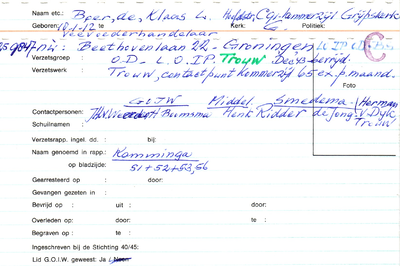 Naam etc.: Boer, de, Klaas L. Kerk: Politiek:
Geboren: 10-1-12 te Grijpskerk
Veevoederhandelaar
nu: Beethovenlaan 22 - Groningen
Verzetsgroep O.D. - L.O. I.P. Trouw Dec '43 - bevrijd.
Verzetswerk Trouw, contactpunt Kommerzijl 65 ex. p. maand.
Foto
G.I.J.W. Middel Smedema Herman
Contactpersonen: Buursma Henk Ridder de Jong v. Dijk
Schuilnamen : Trouw
Verzetsrapp. ingel. dd. : bij:
Naam genoemd in rapp.: Kamminga
op bladzijde: 51 + 52 + 53, 56
Gearresteerd op : door:
Gevangen gezeten in :
Bevrijd op : uit : door:
Overleden op : door: te :
Begraven op : te :
Ingeschreven bij de Stichting 40/45:
Lid G.O.I.W. geweest: Ja / Neen
C